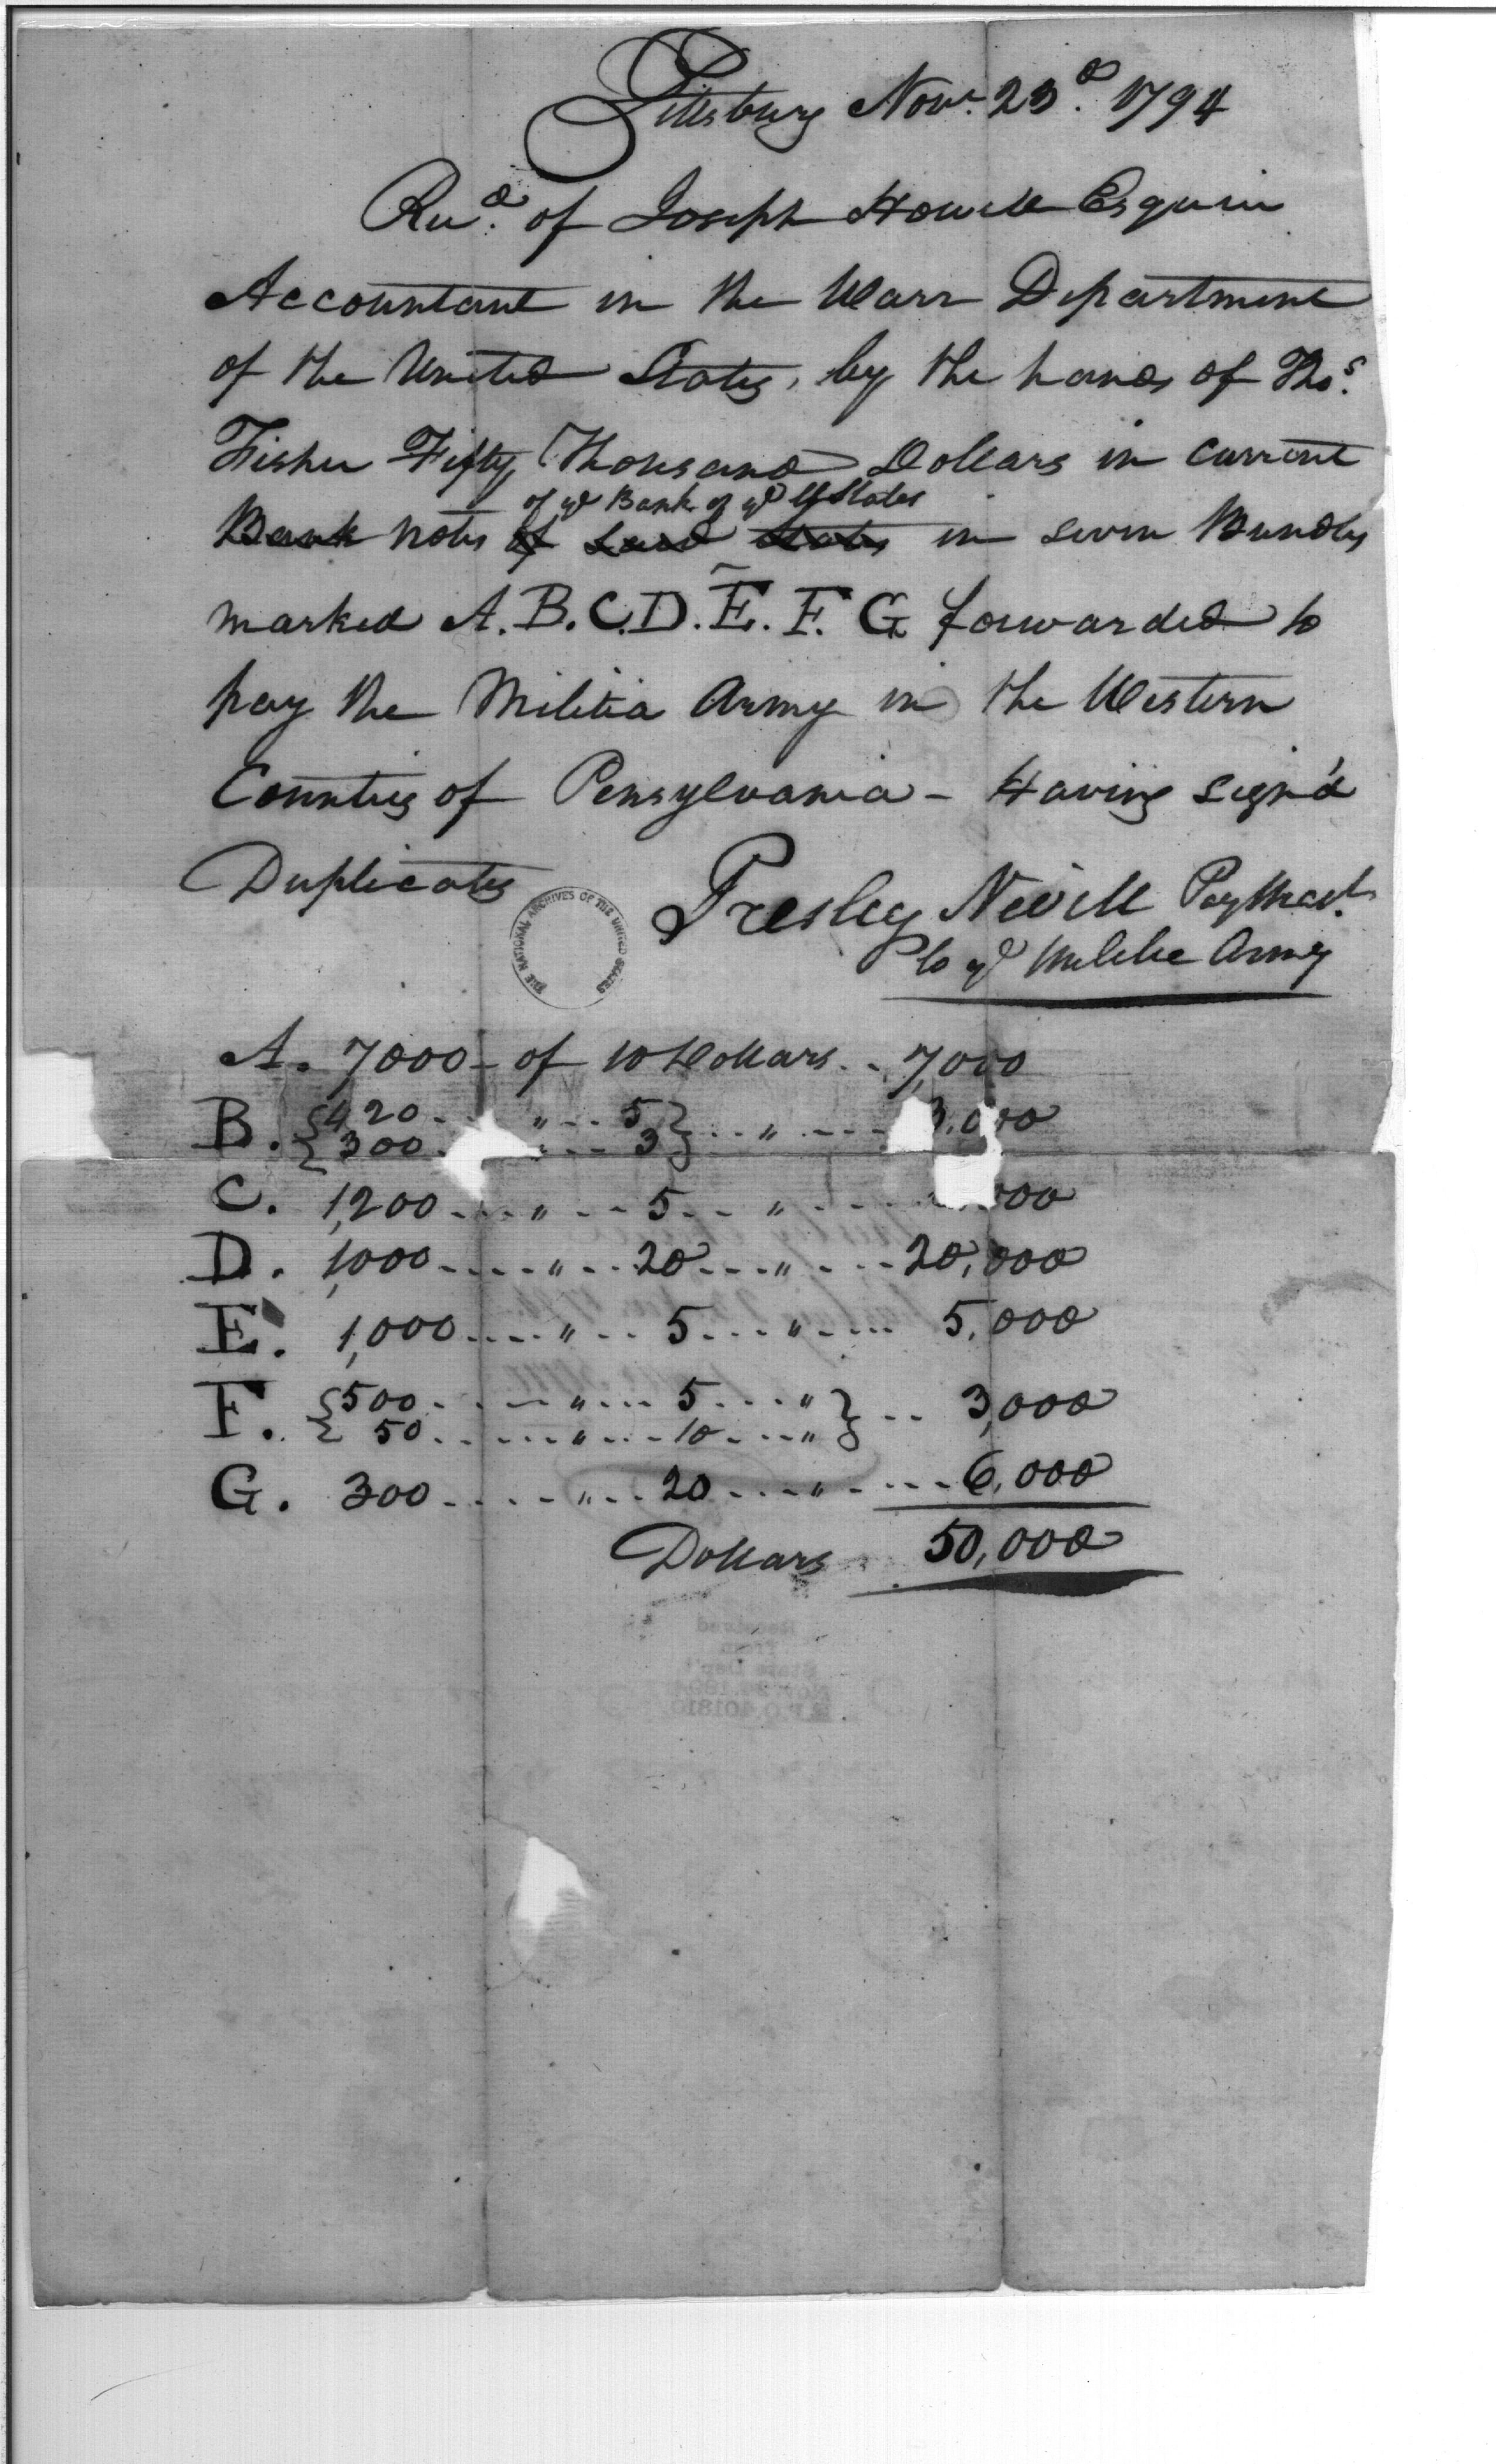 Pittsburg Novr. 23d. 1794
Recd. of Joseph Howell Esquire
Accountant in the Warr Department
of the United States, by the hands of Thos.
Fisher Fifty Thousand Dollars in Current
of ye Bank of ye U States
Bank notes of said States in seven Bundles
marked A. B. C. D. E. F. G forwarded to
pay the Militia Army in the Western
Counties of Pensylvania - Having sign'd
Duplicates
Presley Nevill PayMast.
to ye Militia Army
THE NATIONAL ARCHIVES OF THE UNITED STATES
A. 7000 - of 10 Dollars .. 7,000
B. {420 .. " .. 5} .. " .... 3,000
{300 .... 3}
C. 1,200 .... " ... 5 .. " .... 000
D. 1,000 .... " .. 20 ... " .... 20,000
E. 1,000 .... " .. 5 ... " .... 5,000
F. {500 .... " ... 5 .... " } .. 3,000
{50 .... " ... 10 .... " }
G. 300 .... " .. 20 ... " .... 6,000
Dollars 50,000
Received
From
State Dep't